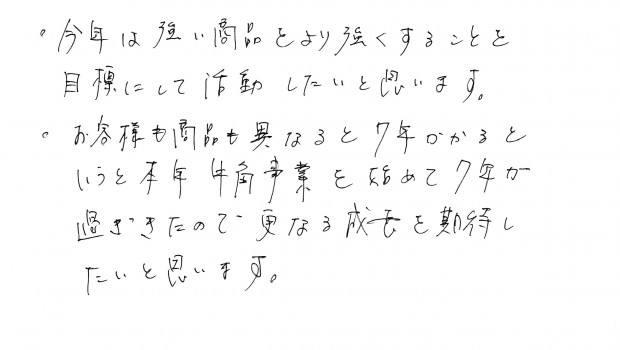 ・今年は強い商品をより強くすることを
目標にして活動したいと思います。
・お客様も商品も異なると7年かかると
いうと本年 事業を始めて7年が
過ぎきたので更なる成長を期待し
たいと思います。